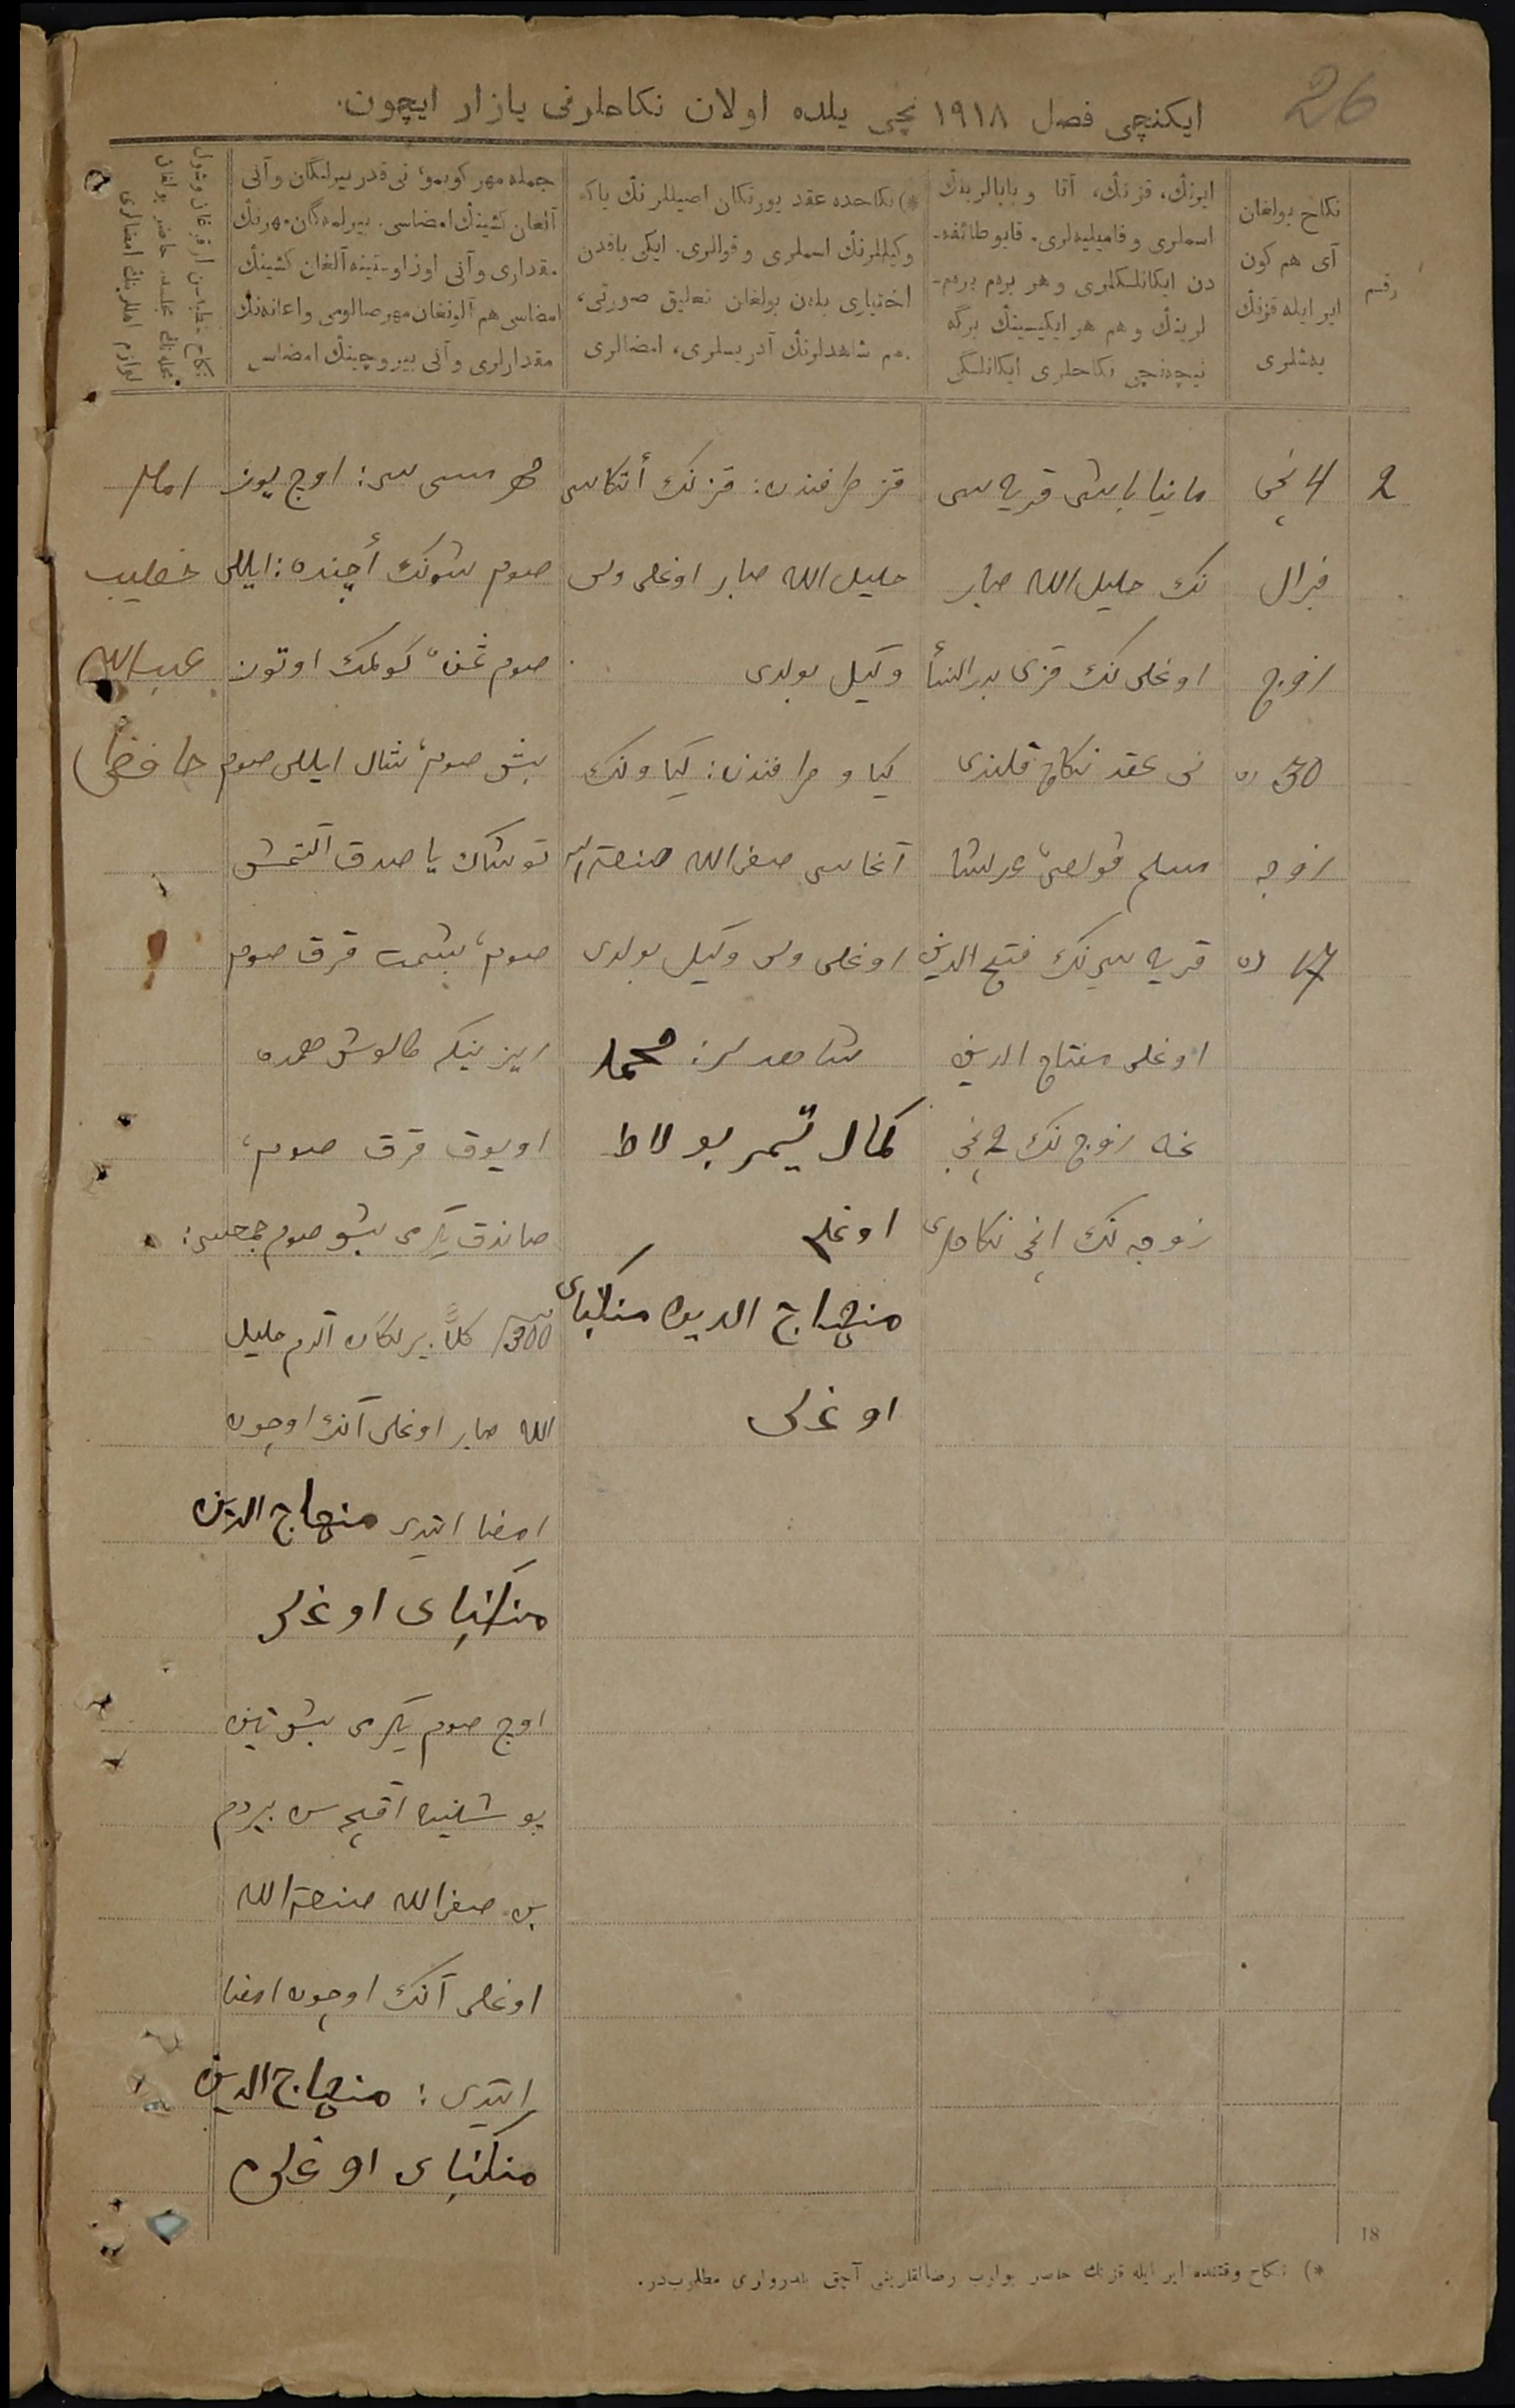 26
ایکنچی فصل ۱۹۱۸ نچی یلده اولان نکاحلرنی یازار ایچون.
رقم
نکاح بولغان
آی هم کون
ایر ایله قزنڭ
یەشلری
ایرنڭ، قزنڭ، آتا و بابالرینڭ
اسملری و فامیلیەلری. قایو طائفه‌-
دن ایکانلکلری و هر برەم برەم-
لرینڭ و هم هر ایکیسینڭ برگه
نیچەنچی نکاحلری ایکانلگی
*) نکاحده عقد یورتکان اصیللرنڭ یاکه
وکیللرنڭ اسملری و قوللری. ایکی یاقدن
اختیاری بلەن بولغان تعلیق صورتی،
هم شاهدلرنڭ آدریسلری، امضالری
جمله مهر کوبمو، نی قدر بیرلگان و آنی
آلغان کشینڭ امضاسی. بیرلمەگان مهرنڭ
مقداری و آنی اوز اوستینه آلغان کشینڭ
امضاسی هم آلونغان مهر صالومی و اعانەنڭ
مقدارلری و آنی بیروچینڭ امضاسی
2
4 نچی
فبرال
زوج
30 ده
زوجه
17 ده
مانیا باشی قریه سی
نك خلیل الله صابر
اوغلی نك قزی بدرالنسأ
نی عقد نکاح قلندی
مسلم
قریه سی نك فتح الدین
اوغلی مفتاح الدین
غه زوج نك 2 نچی
زوجه نك 1 نچی نکاحلری
قز طرفندن: قزنك أتکاسی
خلیل الله صابر اوغلی ولی
وکیل بولدی
کیاو طرفندن: کیاونك
آغاسی صفی الله صنعة الله
اوغلی ولی وکیل بولدی
شاهدلر: محمد
کمال تیمر بولاط
اوغلی
منهاج الدین منکلبای
اوغلی
مهر مسمی سی: اوچ یوز
صوم شونك أچنده: ایللی
صوم کولمك اوتوز
بش صوم، شال ایللی صوم
توشاك یاصدق آلتمش
صوم، بشمت قرق صوم
ریزینکه کالوش
اویوق قرق صوم،
صاندق یکرمی بش صوم جمعسی:
300 کلاً بیرلکان آدم خلیل
الله صابر اوغلی آنك اوچون
امضا ایتدی منهاج الدین
منکلبای اوغلی
اوچ صوم یکرمی بش تین
پوشلینه آقچه سن بیردم
بن صفی الله صنعة الله
اوغلی آنك اوچون امضا
ایتدی: منهاج الدین
منکلبای اوغلی
امام
خطیب
عبدالله
حافظی
18
*) نکاح وقتنده ایر ایله قزنڭ حاضر بولوب رضالقلرینی آچق بلدرولری مطلوبدر.